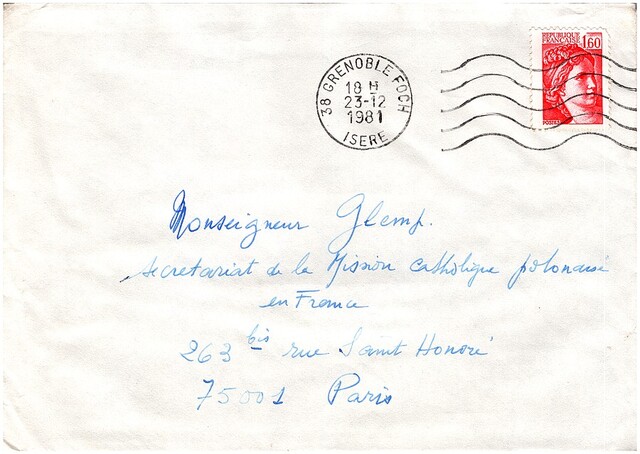 REPUBLIQUE
FRANCAISE
1,60
POSTES
38 GRENOBLE FOCH
18 H
23-12
1981
ISERE
Monseigneur Glemp.
secretariat de la Mission catholique polonaise
en France
263 bis rue Saint Honoré
75001 Paris